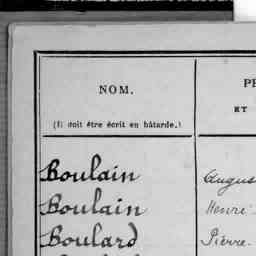 NOM. P
(Il doit être écrit en bâtarde.) ET
Boulain Augus
Boulain Henri
Boulard Pierre